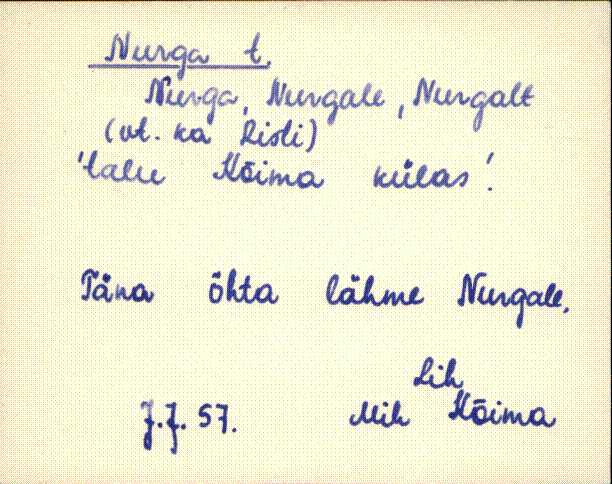 Nurga t.
Nurga, Nurgale, Nurgalt
(vt. ka Risti)
'talu Kõima külas'.
Täna õhta lähme Nurgale.
Lih
J.J. 57. Mih Kõima